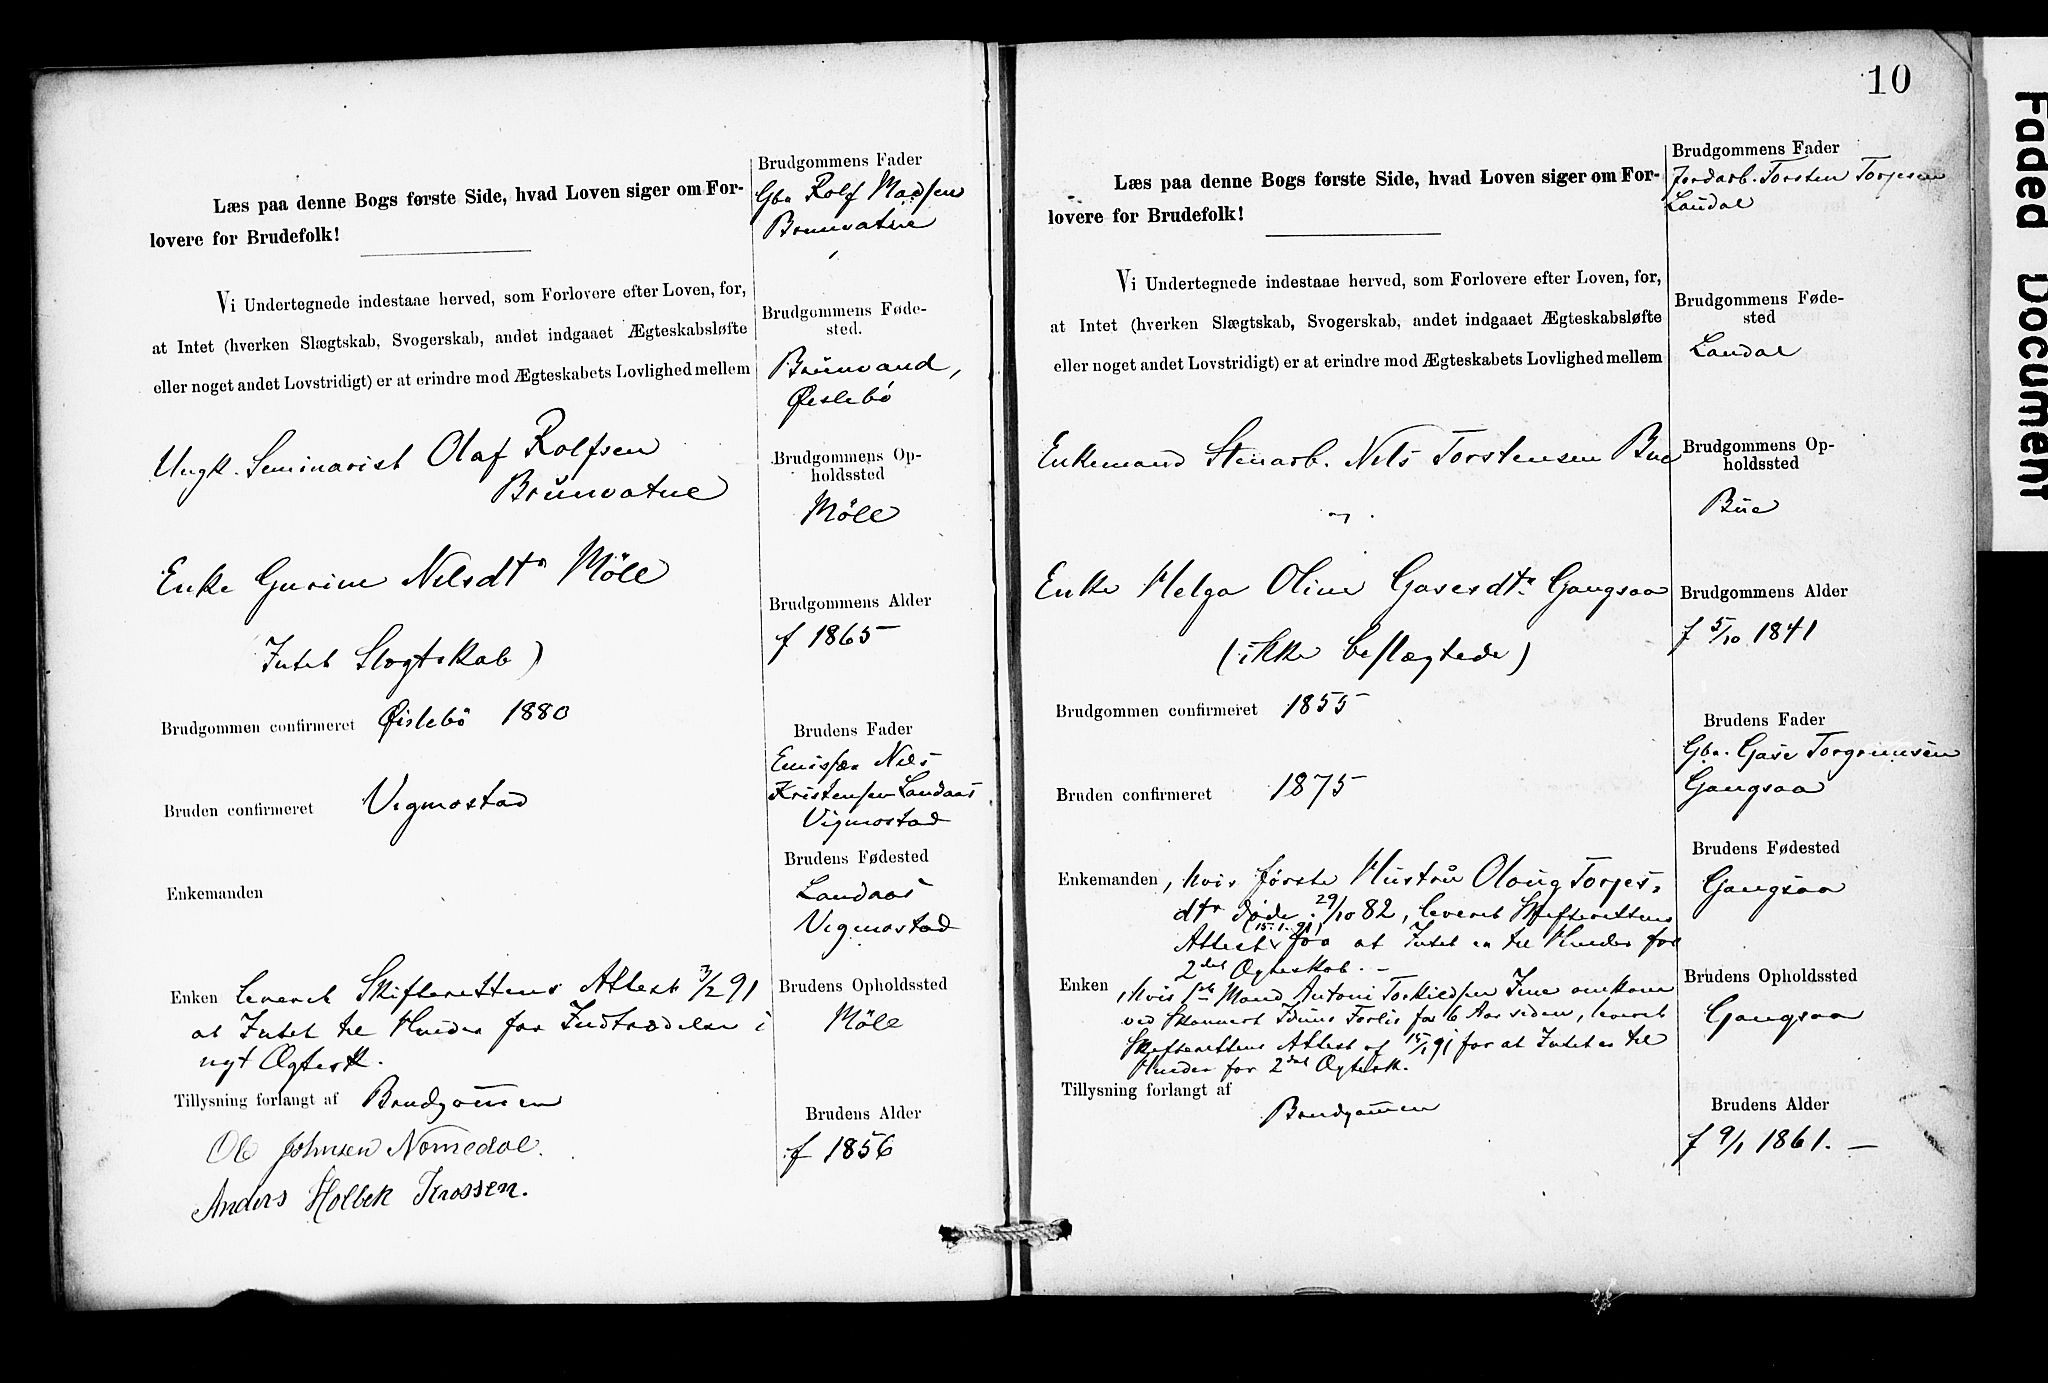 Læs paa denne Bogs første Side, hvad Loven siger om For-
lovere for Brudefolk!
Vi Undertegnede indestaae herved, som Forlovere efter Loven, for,
at Intet (hverken Slægtskab, Svogerskab, andet indgaaet Ægteskabsløfte
eller noget andet Lovstridigt) er at erindre mod Ægteskabets Lovlighed mellem
Ungk. Seminarist Olaf Rolfsen
Brünvatne
Enke Gurine Nilsdtr Möll
Intet Slægtskab)
Brudgommen confirmeret Øislebö 1880
Bruden confirmeret Vigmostad
Enkemanden
Enken leveret Skifterettens Attest 3/2 91
at Intet til Hinder for Indtrædelse i
nyt Ægtesk.
Tillysning forlangt af Brudgommen
Ole Johnsen Nomedal.
Anders Holbek Krossen.
Brudgommens Fader
Gbr Rolf Madsen
Brunvatne
Brudgommens Føde-
sted.
Brünvand,
Øislebö
Brudgommens Op-
holdssted
Möll
Brudgommens Alder
f 1865
Brudens Fader
Emissær Nils
Kristensen Landaas
Vigmostad
Brudens Fødested
Landaas
Vigmostad
Brudens Opholdssted
Möll
Brudens Alder
f 1856
10
Læs paa denne Bogs første Side, hvad Loven siger om For-
lovere for Brudefolk!
Vi Undertegnede indestaae herved, som Forlovere efter Loven, for,
at Intet (hverken Slægtskab, Svogerskab, andet indgaaet Ægteskabsløfte
eller noget andet Lovstridigt) er at erindre mod Ægteskabets Lovlighed mellem
Enkemand Stenarb. Nils Torstensen Bue
og
Enke Helga Oline Gasesdtr Gangsaa
(ikke beslægtede)
Brudgommen confirmeret 1855
Bruden confirmeret 1875
Enkemanden, hvis første Hustrü Olaug Torjes-
dtr døde 29/10 82, leveret Skifterettens
Attest (15.1.91) for at Intet er til Hinder for
2det Ægteskab. -
Enken, hvis Mand Antoni Torkildsen Ime omkom
ved Skonnert Idüns Forlis for 6 Aar siden, leveret
Skifterettens Attest af 15/1 91 for at Intet er til
Hinder for 2det Ægtesk.
Tillysning forlangt af
Brudgommen
Brudgommens Fader
Jordarb. Torsten Torjesen
Laudal
Brudgommens Føde-
sted
Laudal
Brudgommens Op-
holdssted
Büe
Brudgommens Alder
f 5/10 1841
Brudens Fader
Gbr. Gase Torgrimsen
Gangsaa
Brudens Fødested
Gangsaa
Brudens Opholdssted
Gangsaa
Brudens Alder
f 9/1 1861. -
Faded Document